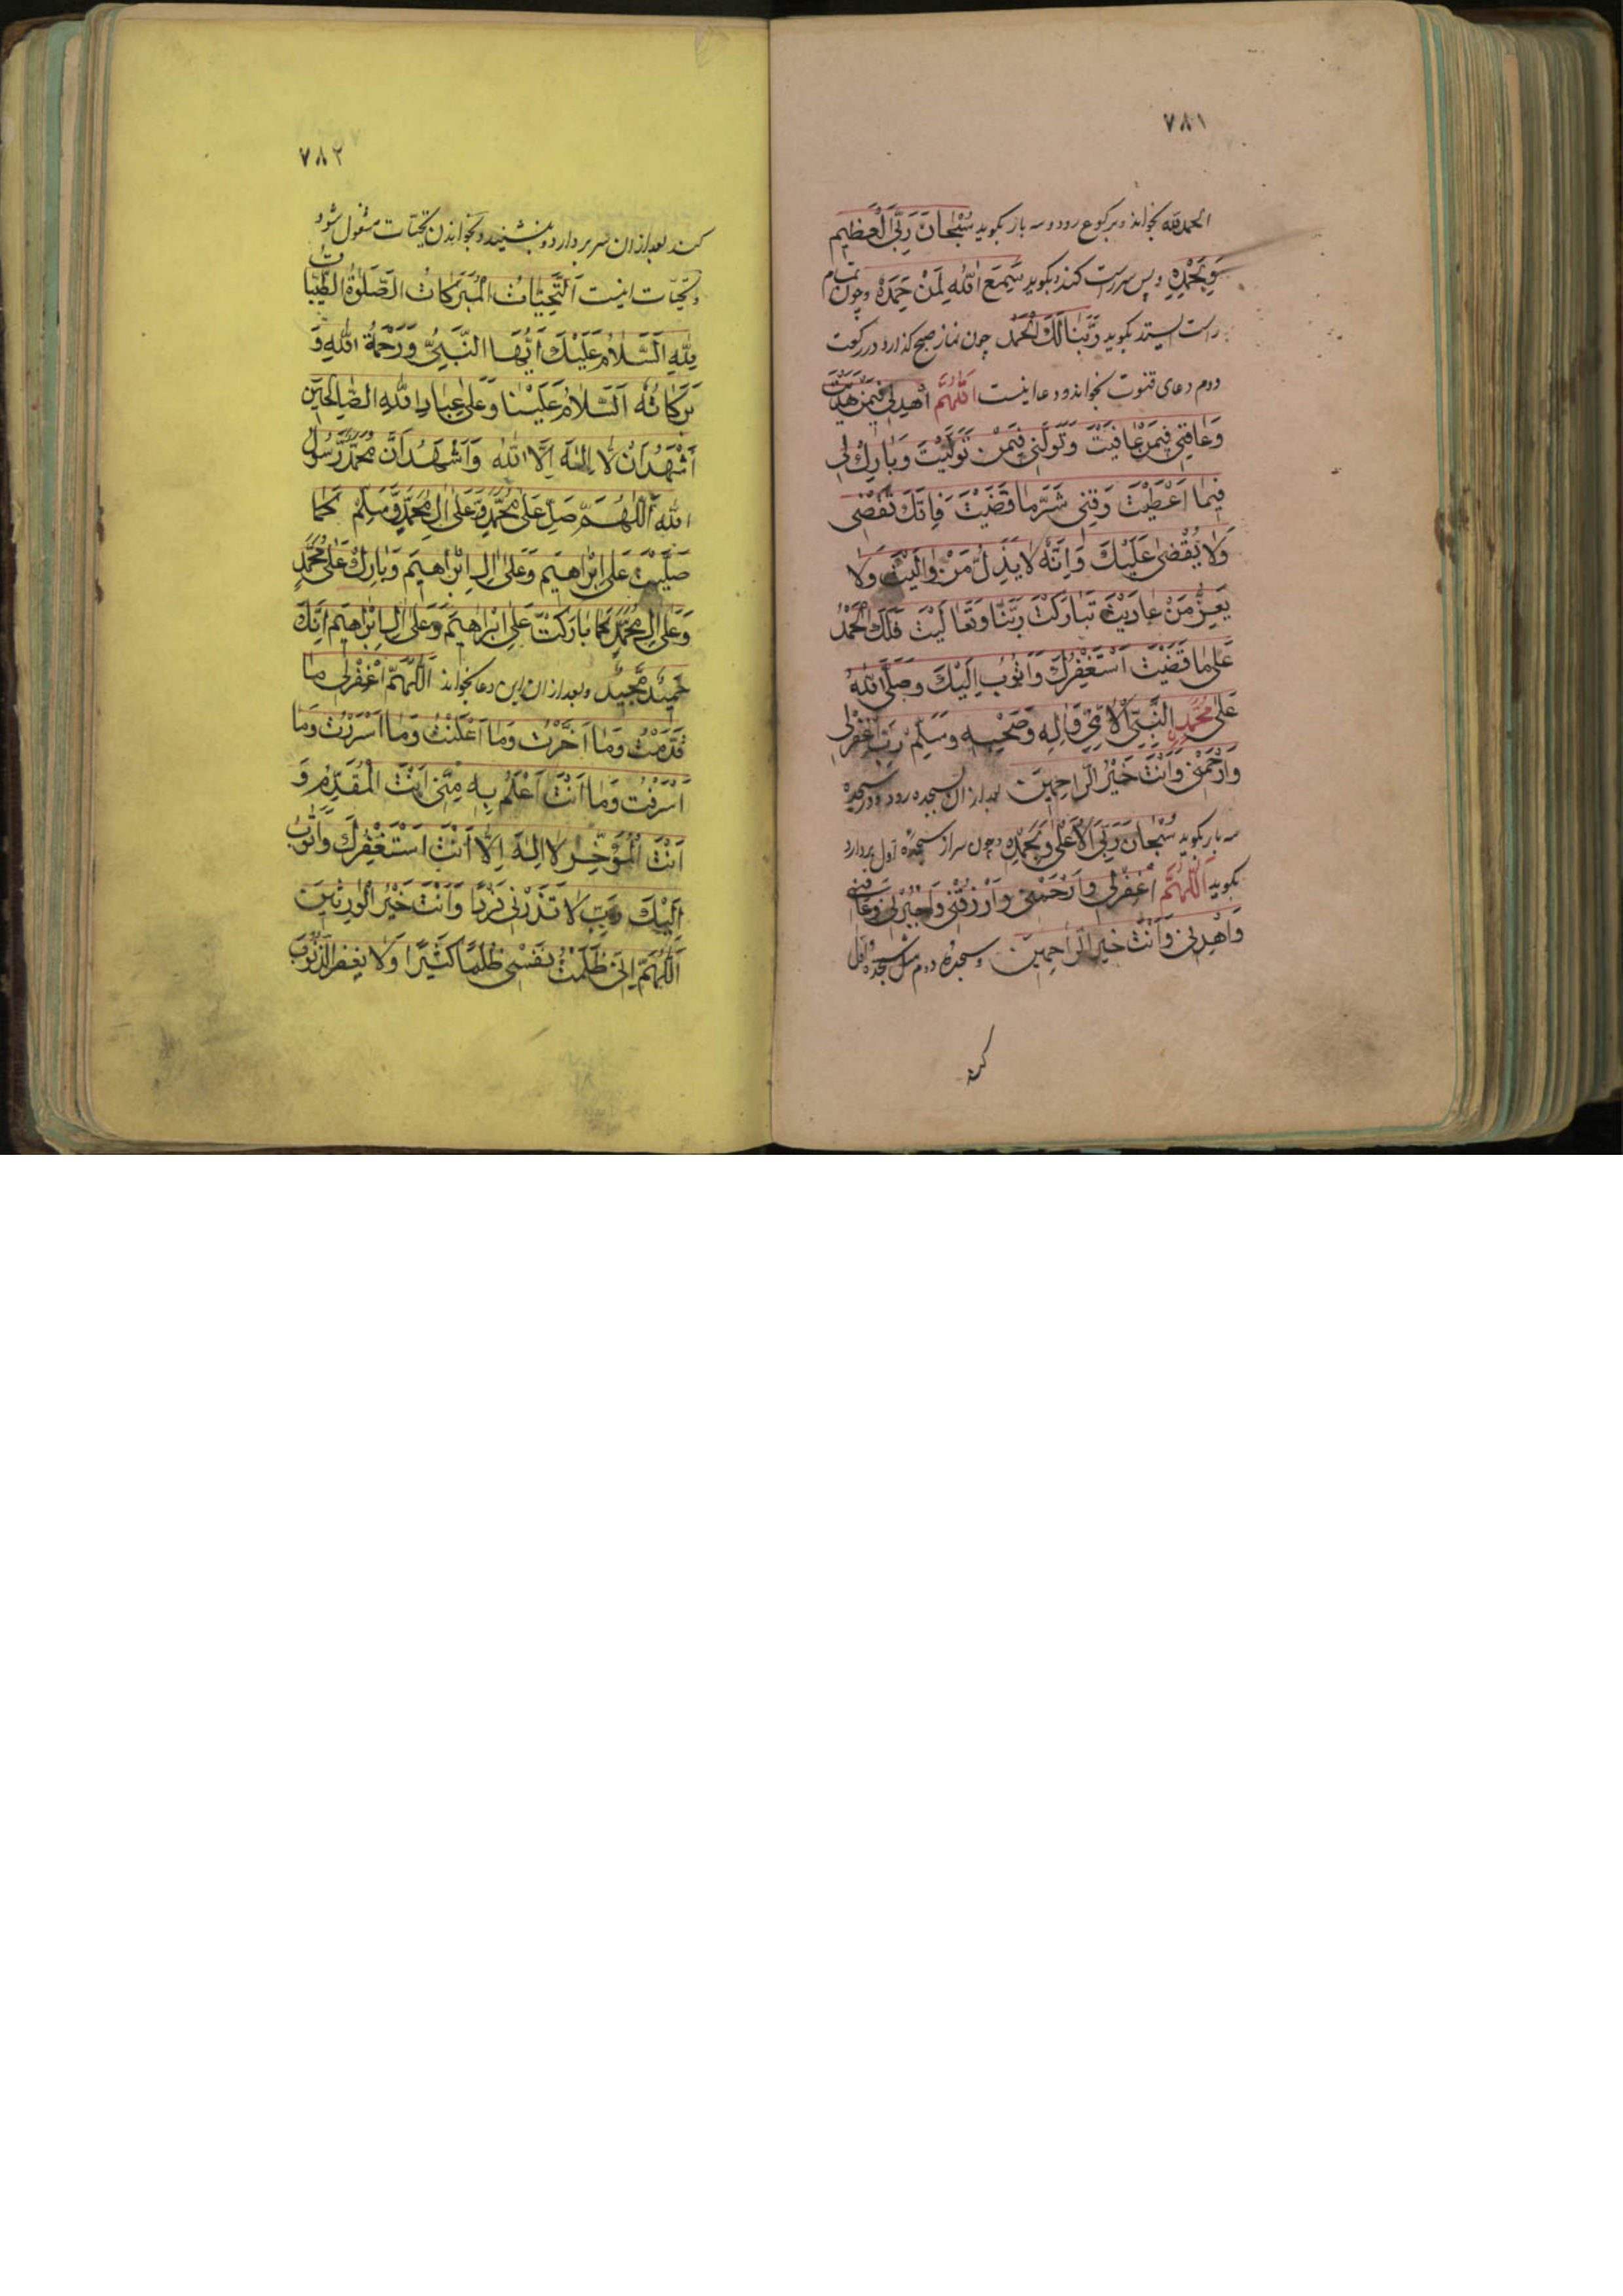 ٧٨١
الحمد لله بخواند و بركوع رود و سه بار بكويد سُبْحَانَ رَبِّيَ الْعَظِيمِ
وَبِحَمْدِهِ و پس سر راست كند و بكويد سَمِعَ اللهُ لِمَنْ حَمِدَهُ و چون تمام
راست ايستد بكويد رَبَّنَا لَكَ الْحَمْدُ چون نماز صبح كذارد در ركعت
دوم دعاى قنوت بخواند و دعا اينست اَللّٰهُمَّ اهْدِنِي فِيمَنْ هَدَيْتَ
وَعَافِنِي فِيمَنْ عَافَيْتَ وَتَوَلَّنِي فِيمَنْ تَوَلَّيْتَ وَبَارِكْ لِي
فِيمَا اَعْطَيْتَ وَقِنِي شَرَّ مَا قَضَيْتَ فَاِنَّكَ تَقْضِي
وَلَا يُقْضٰى عَلَيْكَ وَاِنَّهُ لَا يَذِلُّ مَنْ وَالَيْتَ وَلَا
يَعِزُّ مَنْ عَادَيْتَ تَبَارَكْتَ رَبَّنَا وَتَعَالَيْتَ فَلَكَ الْحَمْدُ
عَلٰى مَا قَضَيْتَ اَسْتَغْفِرُكَ وَاَتُوبُ اِلَيْكَ وَصَلَّى اللهُ
عَلٰى مُحَمَّدٍ النَّبِيِّ الْاُمِّيِّ وَاٰلِهِ وَصَحْبِهِ وَسَلِّمْ رَبِّ اغْفِرْلِي
وَارْحَمْنِي وَاَنْتَ خَيْرُ الرَّاحِمِينَ بعد از ان بسجده رود و در سجده
سه بار بكويد سُبْحَانَ رَبِّيَ الْاَعْلٰى وَبِحَمْدِهِ و چون سر از سجدهٔ اول بردارد
بكويد اَللّٰهُمَّ اغْفِرْلِي وَارْحَمْنِي وَارْزُقْنِي وَاجْبُرْنِي وَعَافِنِي
وَاهْدِنِي وَاَنْتَ خَيْرُ الرَّاحِمِينَ و سجدهٔ دوم مثل سجدهٔ اول
كند
٧٨٢
كند بعد از ان سر بردارد و بنشيند و بخواندن تحيّات مشغول شود
و تحيّات اينست اَلتَّحِيَّاتُ الْمُبَرَكَاتُ الصَّلَوٰةُ الطَّيِّبَاتُ
لِلّٰهِ اَلسَّلَامُ عَلَيْكَ اَيُّهَا النَّبِيُّ وَرَحْمَةُ اللهِ وَ
بَرَكَاتُهُ اَلسَّلَامُ عَلَيْنَا وَعَلٰى عِبَادِ اللهِ الصَّالِحِينَ
اَشْهَدُ اَنْ لَا اِلٰهَ اِلَّا اللهُ وَاَشْهَدُ اَنَّ مُحَمَّدًا رَّسُولُ
اللهِ اَللّٰهُمَّ صَلِّ عَلٰى مُحَمَّدٍ وَّعَلٰى اٰلِ مُحَمَّدٍ وَّسَلِّمْ كَمَا
صَلَّيْتَ عَلٰى اِبْرَاهِيمَ وَعَلٰى اٰلِ اِبْرَاهِيمَ وَبَارِكْ عَلٰى مُحَمَّدٍ
وَعَلٰى اٰلِ مُحَمَّدٍ كَمَا بَارَكْتَ عَلٰى اِبْرَاهِيمَ وَعَلٰى اٰلِ اِبْرَاهِيمَ اِنَّكَ
حَمِيدٌ مَّجِيدٌ و بعد از ان اين دعا بخواند اَللّٰهُمَّ اغْفِرْلِي مَا
قَدَّمْتُ وَمَا اَخَّرْتُ وَمَا اَعْلَنْتُ وَمَا اَسْرَرْتُ وَمَا
اَسْرَفْتُ وَمَا اَنْتَ اَعْلَمُ بِهِ مِنِّي اَنْتَ الْمُقَدِّمُ وَ
اَنْتَ الْمُؤَخِّرُ لَا اِلٰهَ اِلَّا اَنْتَ اَسْتَغْفِرُكَ وَاَتُوبُ
اِلَيْكَ رَبِّ لَا تَذَرْنِي فَرْدًا وَاَنْتَ خَيْرُ الْوَارِثِينَ
اَللّٰهُمَّ اِنِّي ظَلَمْتُ نَفْسِي ظُلْمًا كَثِيرًا وَلَا يَغْفِرُ الذُّنُوبَ